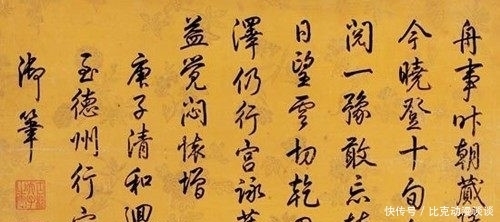 舟事昨朝蕆
今晓登十旬
阅一豫敢忘
日望雲切乾
澤仍行宫詠
益觉闷懷增
庚子清和迴
至德州行宫
御筆
快传号/比克动漫谈谈